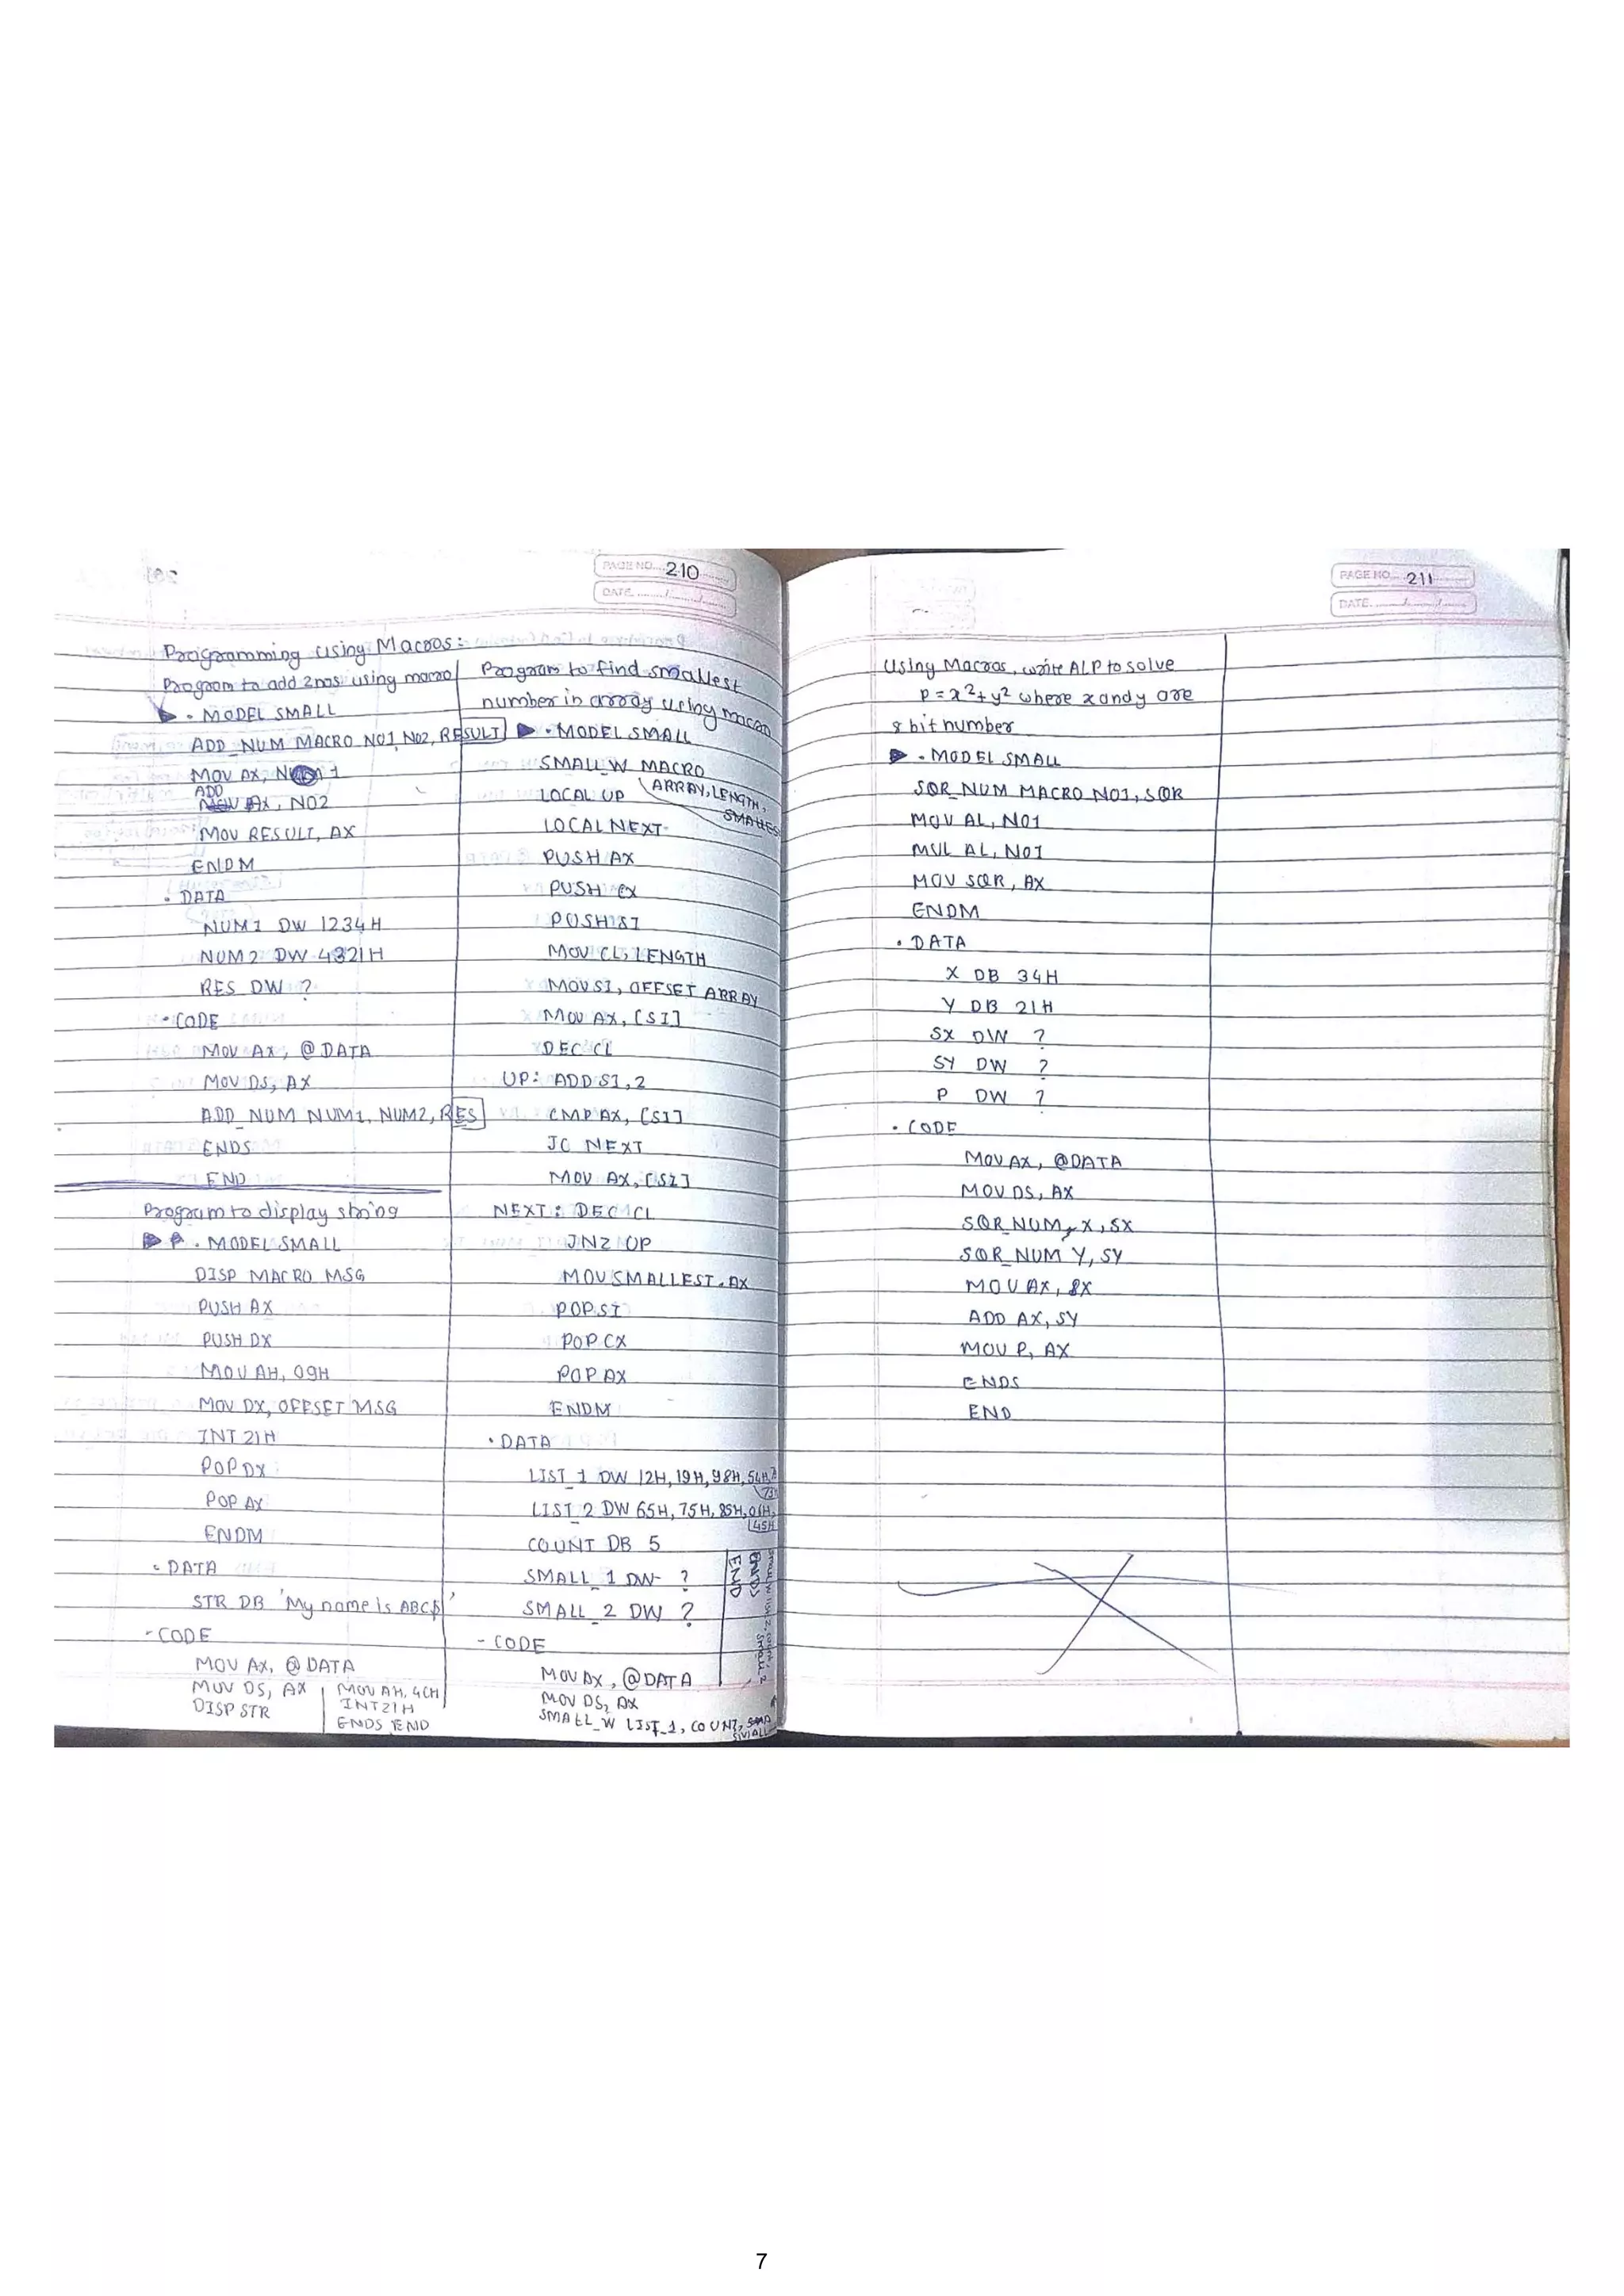 PAGE NO. 210
DATE
Programming using Macros:
Program to add 2nos. using macro
. MODEL SMALL
ADD_NUM MACRO NO1, NO2, RESULT
MOV AX, NO1
ADD AX, NO2
MOV RESULT, AX
ENDM
. DATA
NUM1 DW 1234H
NUM2 DW 4321H
RES DW ?
.CODE
MOV AX, @DATA
MOV DS, AX
ADD_NUM NUM1, NUM2, RES
ENDS
END
Program to display string
. MODEL SMALL
DISP MACRO MSG
PUSH AX
PUSH DX
MOV AH, 09H
MOV DX, OFFSET MSG
INT 21H
POP DX
POP AX
ENDM
. DATA
STR DB 'My name is ABC$'
- CODE
MOV AX, @DATA
MOV DS, AX
DISP STR
MOV AH, 4CH
INT 21H
ENDS END
Program to find smallest
number in array using macro
. MODEL SMALL
SMALL_W MACRO
ARRAY, LENGTH,
SMALLES
LOCAL UP
LOCAL NEXT
PUSH AX
PUSH CX
PUSH SI
MOV CL, LENGTH
MOV SI, OFFSET ARRAY
MOV AX, [SI]
DEC CL
UP: ADD SI, 2
CMP AX, [SI]
JC NEXT
MOV AX, [SI]
NEXT: DEC CL
JNZ UP
MOV SMALLEST, AX
POP SI
POP CX
POP AX
ENDM
. DATA
LIST_1 DW 12H, 19H, 98H, 54H,
LIST_2 DW 65H, 75H, 85H, 01H,
45H
COUNT DB 5
SMALL_1 DW ?
SMALL_2 DW ?
- CODE
MOV AX, @DATA
MOV DS, AX
SMALL_W LIST_1, COUNT,
SMALL
SMALL_W LIST_2, COUNT,
SMALL_2
ENDS
END
PAGE NO. 211
DATE
Using Macros, write ALP to solve
P = x²+ y² where x and y are
8 bit number
. MODEL SMALL
SQR_NUM MACRO NO1, SQR
MOV AL, NO1
MUL AL, NO1
MOV SQR, AX
ENDM
. DATA
X DB 34H
Y DB 21H
SX DW ?
SY DW ?
P DW ?
. CODE
MOV AX, @DATA
MOV DS, AX
SQR_NUM X, SX
SQR_NUM Y, SY
MOV AX, SX
ADD AX, SY
MOV P, AX
ENDS
END
7